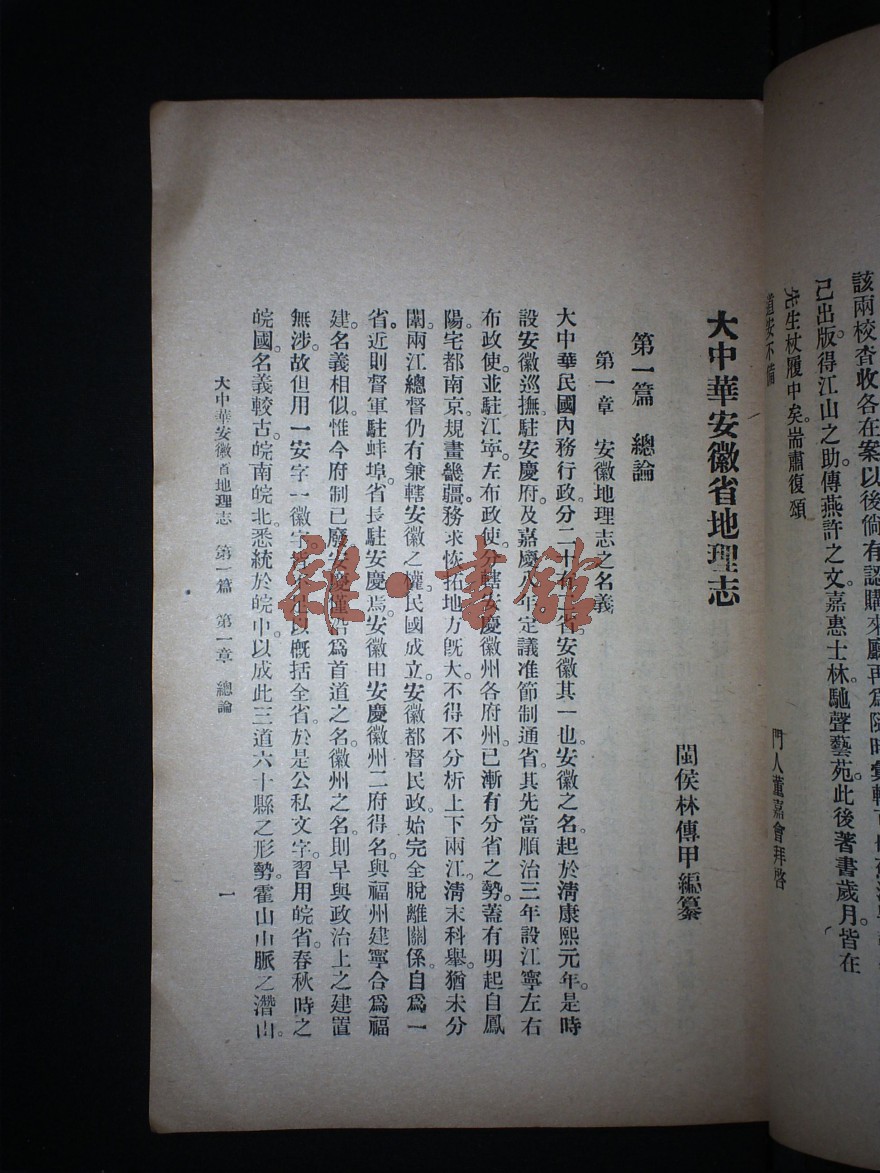 該兩校查收各在案以後倘有認購來廳再爲隨時彙轉
已出版得江山之助傳燕許之文嘉惠士林馳聲藝苑此後著書歲月皆在
先生杖履中矣耑肅復頌
道安不備
門人董嘉會拜啓
大中華安徽省地理志
閩侯林傳甲編纂
第一篇　總論
第一章　安徽地理志之名義
大中華民國內務行政分二十有一省安徽其一也。安徽之名。起於淸康熙元年。是時
設安徽巡撫駐安慶府。及嘉慶八年。定議准節制通省。其先當順治三年。設江寧左右
布政使。並駐江寧。左布政使。分轄安慶徽州各府州。已漸有分省之勢。蓋有明起自鳳
陽。宅都南京。規畫畿疆。務求恢拓。地方旣大。不得不分析上下兩江。淸末科舉。猶未分
闈。兩江總督。仍有兼轄安徽之權。民國成立。安徽都督民政。始完全脫離關係。自爲一
省。近則督軍駐蚌埠。省長駐安慶焉。安徽由安慶徽州二府得名。與福州建寧合爲福
建。名義相似。惟今府制已廢。安慶僅 爲首道之名。徽州之名。則早與政治上之建置
無涉。故但用一安字一徽字。 不足以概括全省。於是公私文字。習用皖省。春秋時之
皖國。名義較古。皖南皖北。悉統於皖中。以成此三道六十縣之形勢。霍山山脈之潛山。
大中華安徽省地理志　第一篇　第一章　總論
一
雜·書館